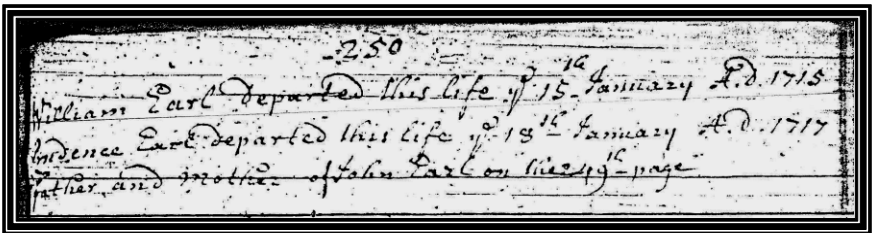 250
William Earl Departed this life ye 15th January A.D. 1715
Prudence Earl departed this life ye 18th January A.D. 1717
Father and Mother of John Earl on the 49th page